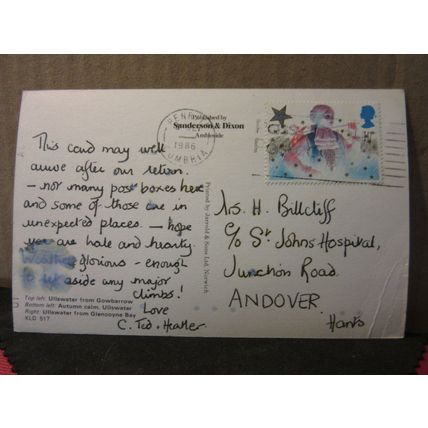 Published by
Sanderson & Dixon
Ambleside
1986
UMBRIA
This card may well
arrive after our return
– not many post boxes here
and some of those are in
unexpected places. – hope
you are hale and hearty.
Weather glorious – enough
to let aside any major
climbs!
Love
C. Ted + Heather
Top left: Ullswater from Gowbarrow
Bottom left: Autumn calm, Ullswater
Right: Ullswater from Glencoyne Bay
KLD 517
Printed by Jarrold & Sons Ltd, Norwich
H. Billcliff
c/o St Johns Hospital,
Junction Road
ANDOVER
Hants